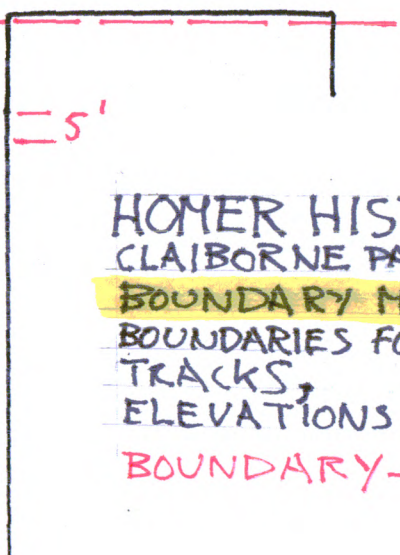 5'
HOMER HIS
CLAIBORNE PA
BOUNDARY M
BOUNDARIES FO
TRACKS,
ELEVATIONS
BOUNDARY-